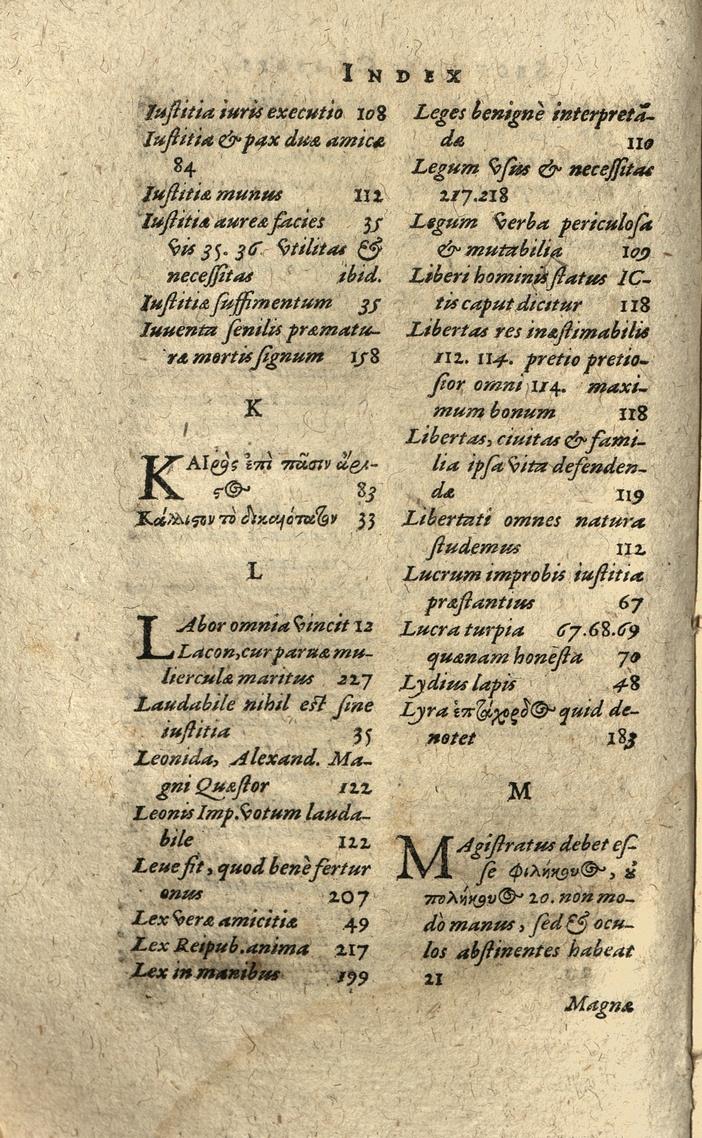 INDEX
Iustitia iuris executio 108
Iustitia & pax duæ amicæ
84
Iustitiæ munus 112
Iustitiæ aureæ facies 35
vis 35. 36. vtilitas &
necessitas ibid.
Iustitiæ suffimentum 35
Iuuenta senilis præmatu-
ræ mortis signum 158
K
ΚΑΙρὸς ἐπὶ πᾶσιν ἄρι-
ϛος 83
Κάλλιϛον τὸ δικαιότατον 33
L
LAbor omnia vincit 12
Lacon, cur paruæ mu-
lierculæ maritus 227
Laudabile nihil est sine
iustitia 35
Leonida, Alexand. Ma-
gni Quæstor 122
Leonis Imp. votum lauda-
bile 122
Leue fit, quod benè fertur
onus 207
Lex veræ amicitiæ 49
Lex Reipub. anima 217
Lex in manibus 199
Leges benignè interpretā-
dæ 110
Legum vsus & necessitas
217.218
Legum verba periculosa
& mutabilia 109
Liberi hominis status IC-
tis caput dicitur 118
Libertas res inæstimabilis
112. 114. pretio pretio-
sior omni 114. maxi-
mum bonum 118
Libertas, ciuitas & fami-
lia ipsa vita defenden-
dæ 119
Libertati omnes natura
studemus 112
Lucrum improbis iustitia
præstantius 67
Lucra turpia 67.68.69
quænam honesta 70
Lydius lapis 48
Lyra ἑπτάχορδος quid de-
notet 183
M
MAgistratus debet es-
se φιλήκους, ȣ
πολήκους 20. non mo-
dò manus, sed & ocu-
los abstinentes habeat
21
Magnæ